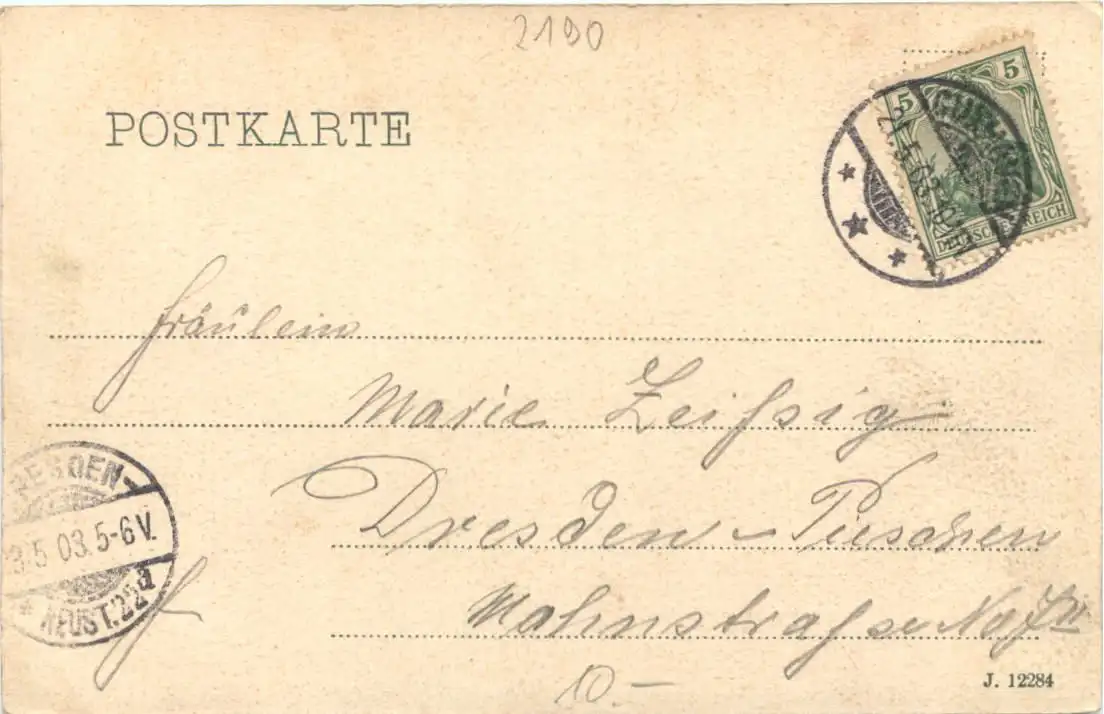 2190
POSTKARTE
5 5
DEUTSCHES REICH
5.03.
Fräulein
Marie Zeißig
Dresden-Pieschen
Mohnstraße No
DRESDEN-
5 03. 5-6 V.
* NEUST. 22 a
10-
J. 12284